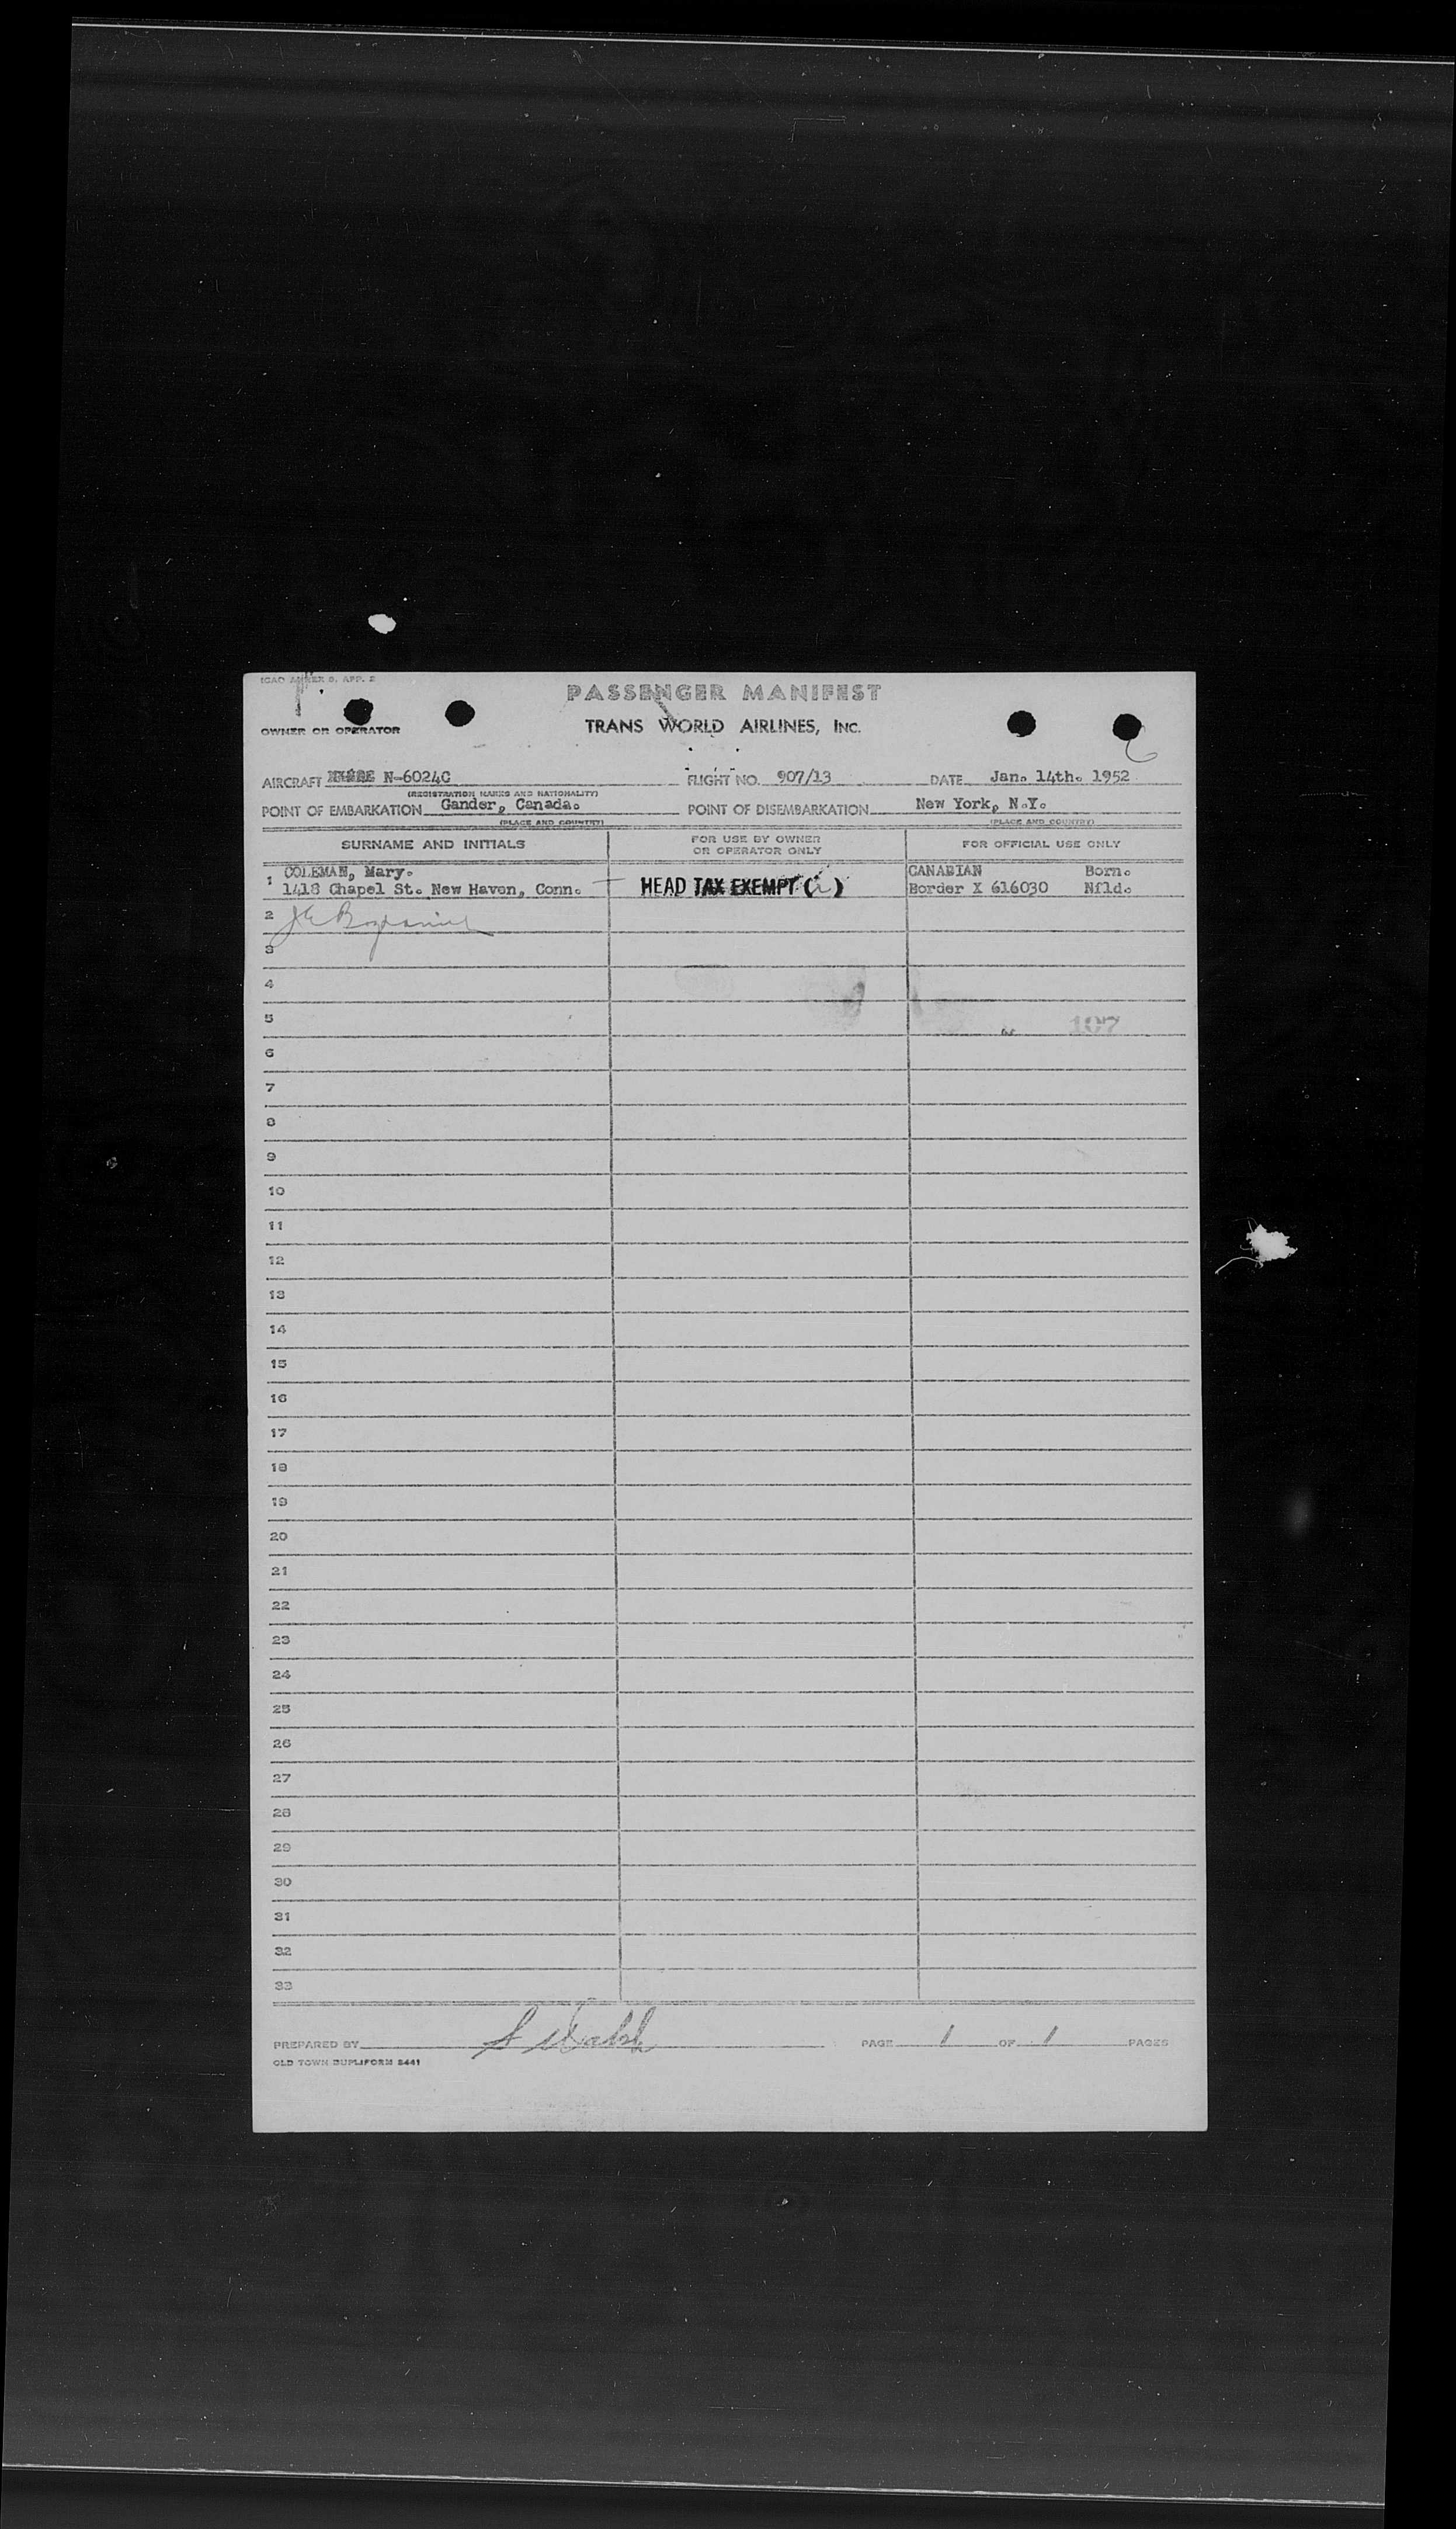 ICAO ANNEX 9, APP. 2
PASSENGER MANIFEST
OWNER OR OPERATOR
TRANS WORLD AIRLINES, INC.
6
AIRCRAFT N-6024C FLIGHT NO. 907/13 DATE Jan. 14th. 1952
(REGISTRATION MARKS AND NATIONALITY)
POINT OF EMBARKATION Gander, Canada. POINT OF DISEMBARKATION New York, N.Y.
(PLACE AND COUNTRY) (PLACE AND COUNTRY)
SURNAME AND INITIALS FOR USE BY OWNER OR OPERATOR ONLY FOR OFFICIAL USE ONLY
1 COLEMAN, Mary. CANADIAN Born.
1418 Chapel St. New Haven, Conn. HEAD TAX EXEMPT ( ) Border X 616030 Nfld.
2
3
4
5 107
6
7
8
9
10
11
12
13
14
15
16
17
18
19
20
21
22
23
24
25
26
27
28
29
30
31
32
33
PREPARED BY S Walsh PAGE 1 OF 1 PAGES
OLD TOWN DUPLIFORM 8441